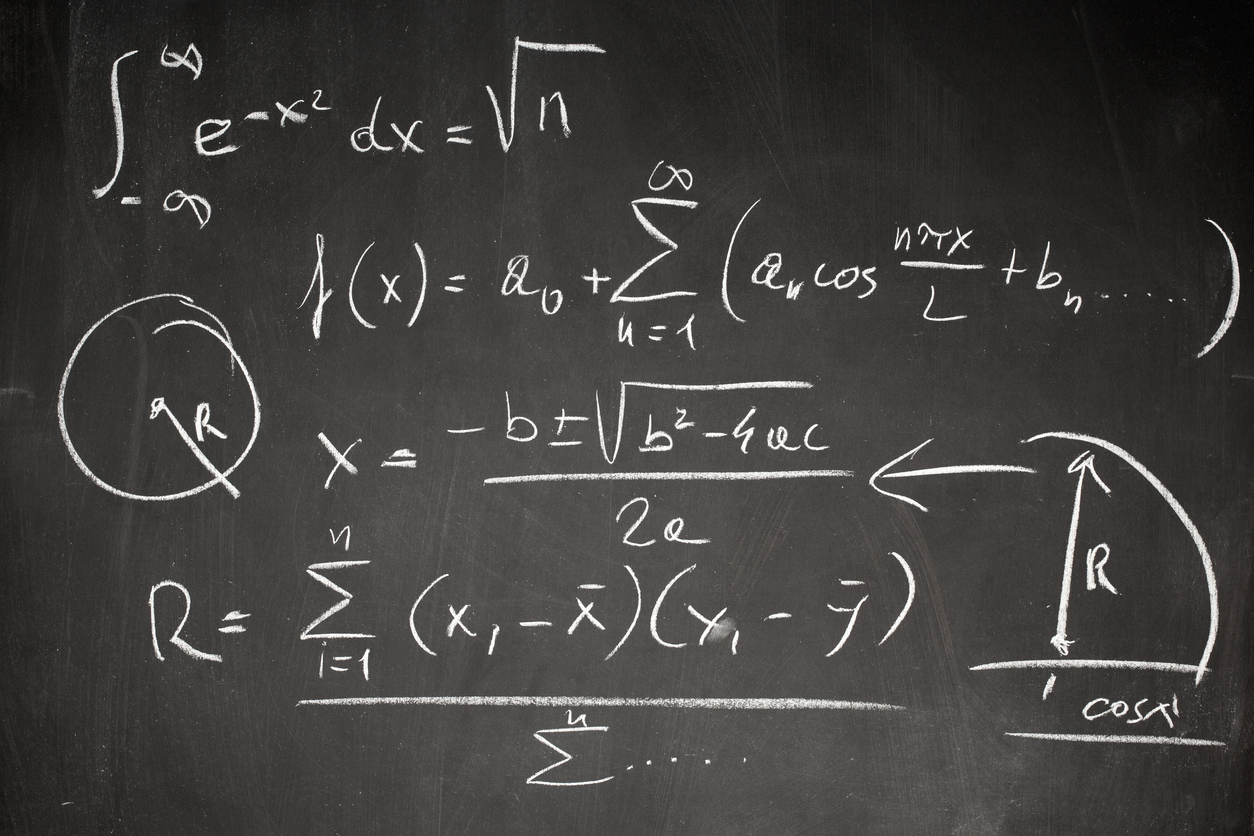 ∫_{-∞}^{∞} e^{-x²} dx = √n
f(x) = a₀ + ∑_{n=1}^{∞} (aₙ cos nπx/L + bₙ ......)
R
x = (-b ± √(b² - 4ac)) / 2a
R
R = ∑_{i=1}^{n} (x₁ - x̄)(y₁ - ȳ) / ∑^{n} ......
cosx